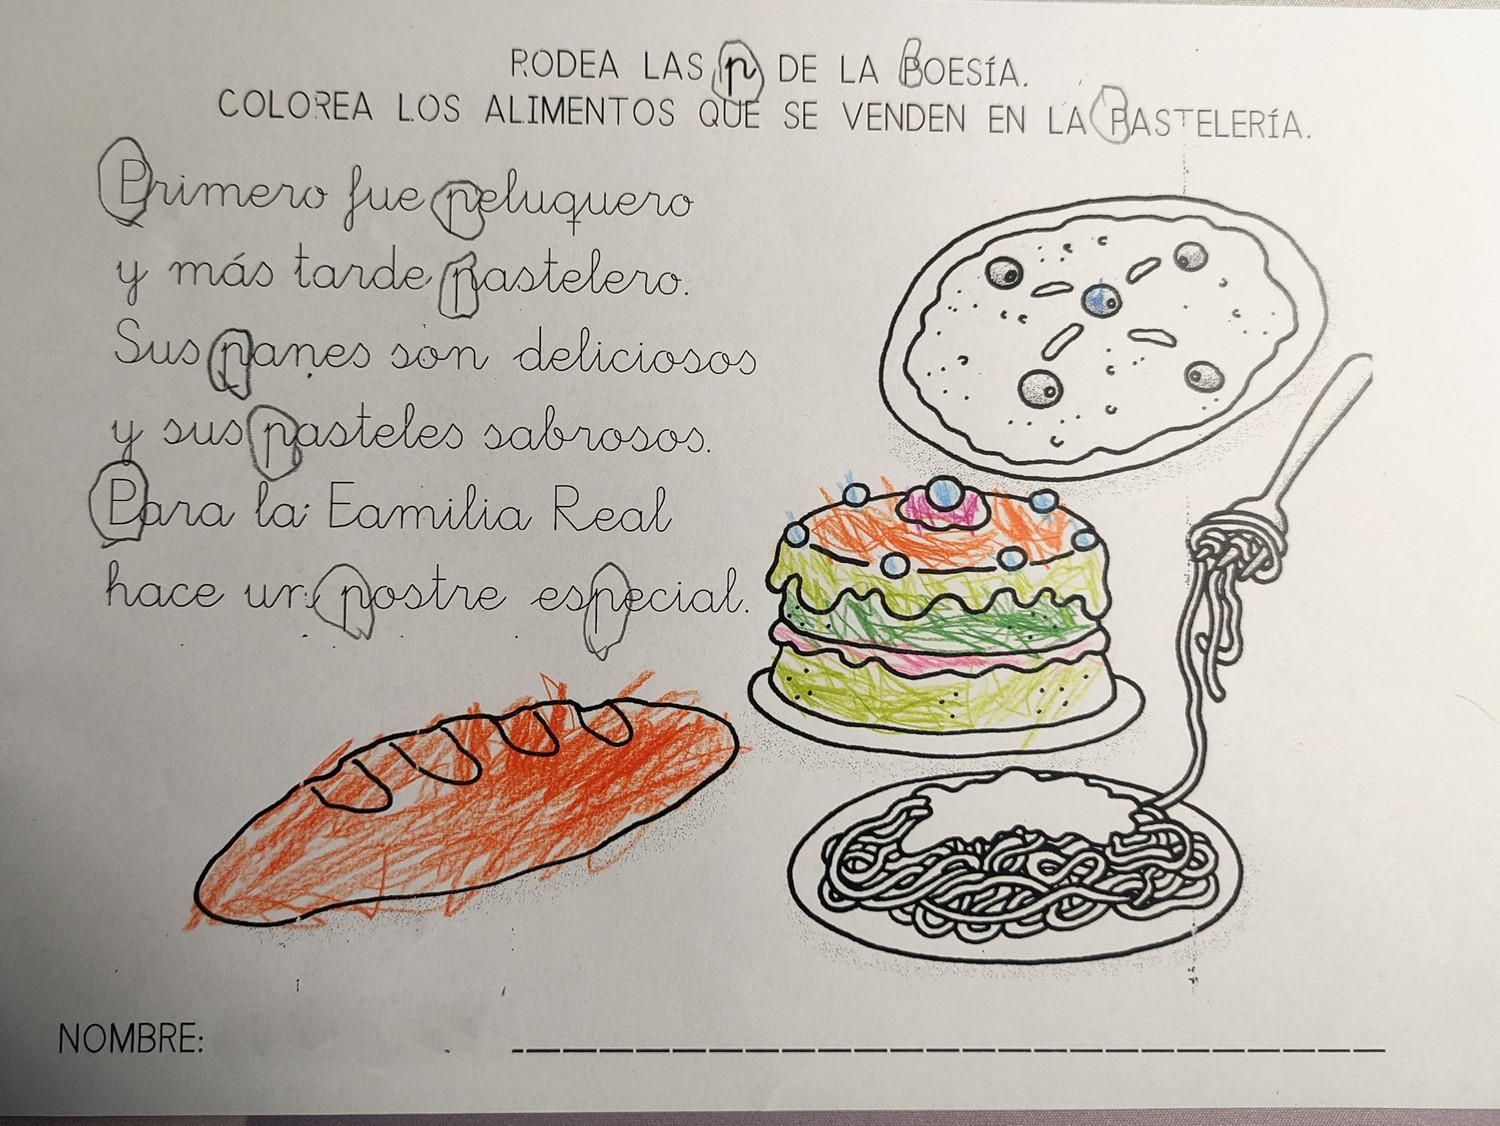 RODEA LAS p DE LA POESÍA.
COLOREA LOS ALIMENTOS QUE SE VENDEN EN LA PASTELERÍA.
Primero fue peluquero
y más tarde pastelero.
Sus panes son deliciosos
y sus pasteles sabrosos.
Para la Familia Real
hace un postre especial.
NOMBRE: